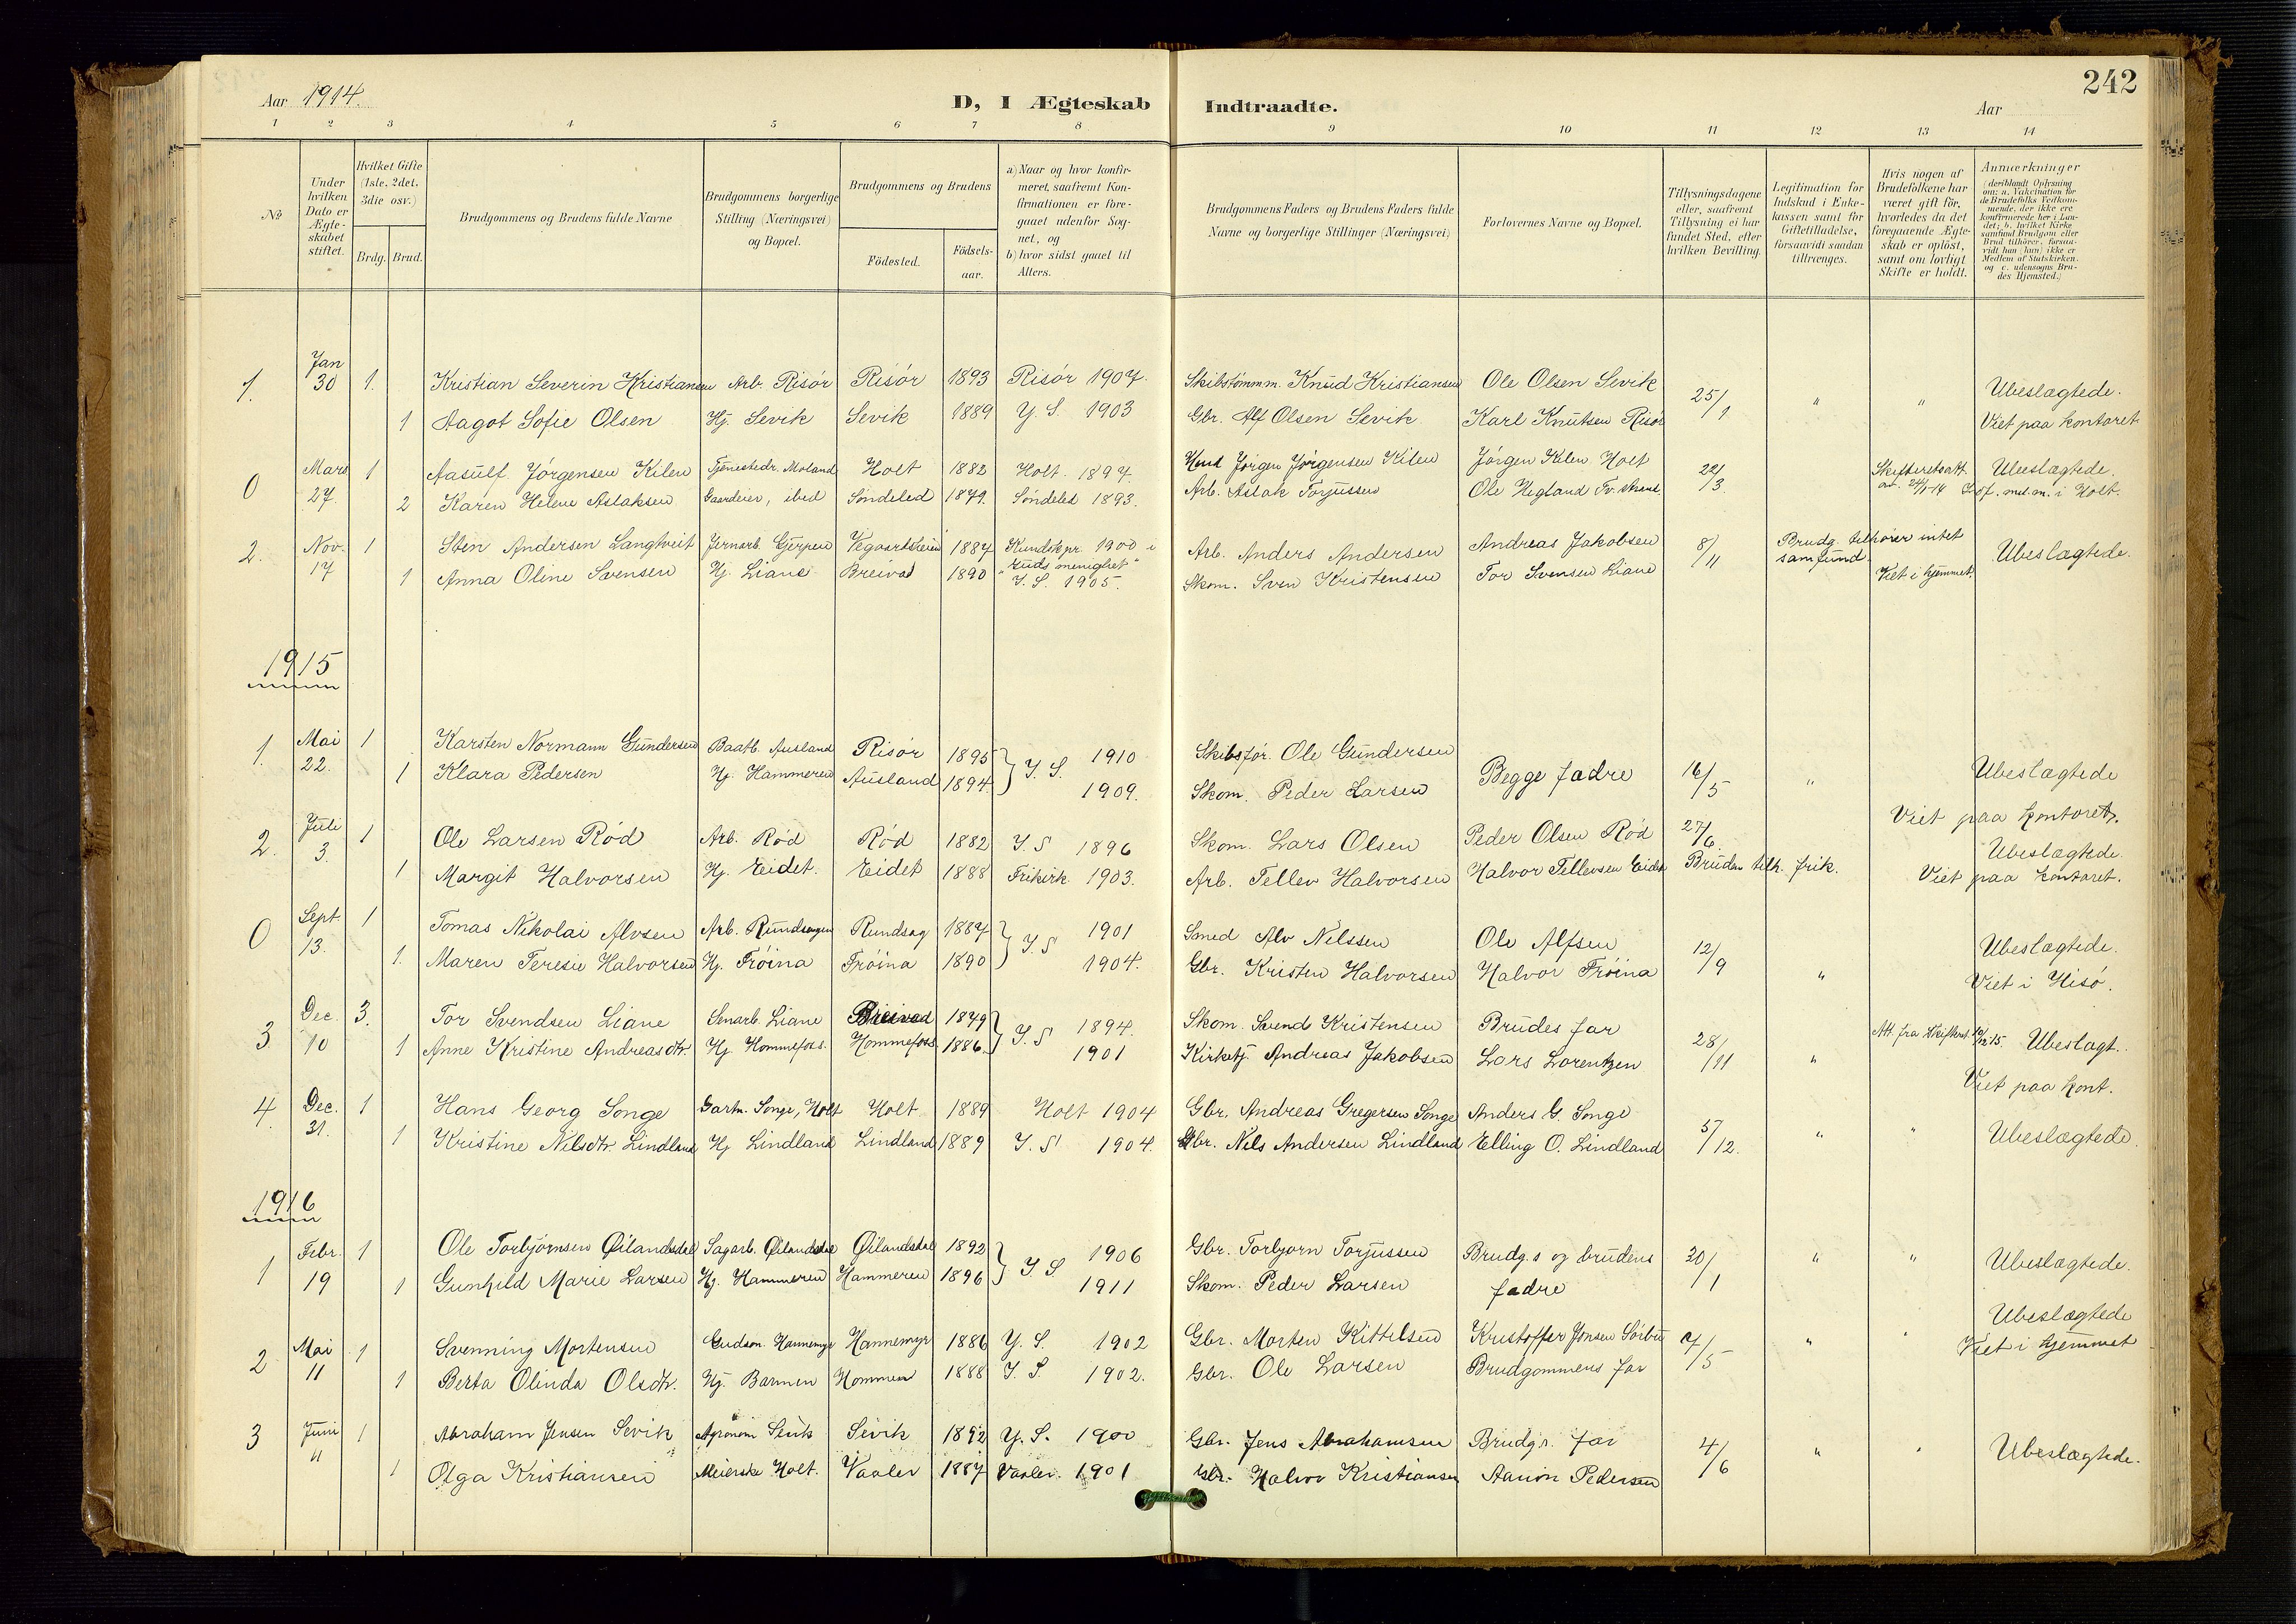 242
Aar 1914.
D, I Ægteskab Indtraadte.
Aar
1 2 3 4 5 6 7 8 9 10 11 12 13 14
No
Under hvilken Dato er Ægteskabet stiftet.
Hvilket Gifte (1ste, 2det, 3die osv.)
Brdg. Brud.
Brudgommens og Brudens fulde Navne
Brudgommens borgerlige Stilling (Næringsvei) og Bopæl.
Brudgommens og Brudens
Födested.
Födsels-aar.
a) Naar og hvor konfirmeret, saafremt Konfirmationen er foregaaet udenför Sognet, og
b) hvor sidst gaaet til Alters.
Brudgommens Faders og Brudens Faders fulde Navne og borgerlige Stillinger (Næringsvei)
Forlovernes Navne og Bopæl.
Tillysningsdagene eller, saafremt Tillysning ei har fundet Sted, efter hvilken Bevilling.
Legitimation for Indskud i Enkekassen samt for Giftetilladelse, forsaavidt saadan tiltrænges.
Hvis nogen af Brudefolkene har været gift för, hvorledes da det foregaaende Ægteskab er oplöst, samt om lovligt Skifte er holdt.
Anmærkninger
(deriblandt Oplysning om: a. Vakcination för de Brudefolks Vedkommende, der ikke ere konfirmerede her i Landet; b. hvilket Kirkesamfund Brudgom eller Brud tilhörer, forsaavidt han (hun) ikke er Medlem af Statskirken. og c. udensogns Brudes Hjemsted.)
1. Jan 30 1. Kristian Severin Kristiansen Arb. Risör Risör 1893 Risör 1907. Skibstömmm. Knud Kristiansen Ole Olsen Sevik 25/1 " " Ubeslægtede.
1 Aagot Sofie Olsen Hj. Sevik Sevik 1889 Y. S. 1903 Gbr. Alf Olsen Sevik Karl Knutsen Risör Viet paa kontoret.
0 Mars 27. 1 Aasulf Jörgensen Kilen Tjenestedr. Moland Holt 1882 Holt. 1897. Jörgen Jörgensen Kilen Jörgen Kilen Holt 22/3 Ubeslægtede.
2 Karen Helene Aslaksen ibid Söndeled 1879. Söndeled 1893. Arb. Aslak Torjussen Ole Hegland Tv.strand i Holt.
2. Nov. 17 1 Sten Andersen Langtveit Jernarb. Gjerpen 1887 1900 i Arb. Anders Andersen Andreas Jakobsen 8/11 Brudg. tilhører intet samfund. Ubeslægtede.
"Guds menighet"
1 Anna Oline Svensen Hj. Liane Breivad 1890 Y. S. 1905. Skom. Sven Kristensen Tor Svensen Liane Viet i hjemmet.
1915
1. Mai 22. 1 Karsten Normann Gundersen Baatb. Ausland Risör 1895 } Y. S. 1910 Skibsför. Ole Gundersen Begge fadre 16/5 " Ubeslægtede
1 Klara Pedersen Hj. Hammeren Ausland 1894 1909. Skom. Peder Larsen
Viet paa kontoret.
2. Juli 3. 1 Ole Larsen Röd Arb. Röd Röd 1882 Y. S 1896 Skom. Lars Olsen Peder Olsen Röd 27/6. Ubeslægtede.
1 Margit Halvorsen Hj. Eidet. Eidet 1888 Frikirk. 1903. Arb. Tellev Halvorsen Halvor Tellevsen Eidet Bruden tilh. frik. Viet paa kontoret.
0 Sept. 13. 1 Tomas Nikolai Alvsen Arb. Rundsagen Rundsag 1887 } Y. S 1901 Smed Alv Nilssen Ole Alfsen 12/9 " Ubeslægtede.
1. Maren Teresie Halvorsen Hj. Fröina Fröina 1890 1904. Gbr. Kristen Halvorsen Halvor Fröina Viet i Hisö.
3 Dec. 10 3. Tor Svendsen Liane Liane Breivad 1879 } Y. S 1894. Skom. Svend Kristensen Brudes far 28/11 " Att. fra Skifteret 15. Ubeslægt.
1 Anne Kristine Andreasdtr. Hj. Hommefoss. Hommefoss 1886. 1901 Kirketj. Andreas Jakobsen Lars Lorentzen
Viet paa kont.
4. Dec. 31. 1 Hans Georg Songe Gartn. Songe, Holt Holt 1889 Holt 1904 Gbr. Andreas Gregersen Songe Anders G. Songe 5/12. " " Ubeslægtede.
1 Kristine Nilsdtr. Lindland Hj Lindland Lindland 1889 Y. S. 1904. Gbr. Nils Andersen Lindland Elling O. Lindland
1916
1 Febr. 19 1 Ole Torbjörnsen Öilandsdal Sagarb. Öilandsdal Öilandsdal 1892 } Y S 1906 Gbr. Torbjörn Torjussen Brudg.s og brudens fadre 30/1 " " Ubeslægtede.
1 Gunhild Marie Larsen Hj. Hammeren Hammeren 1896 1911 Skom. Peder Larsen
2 Mai 11 1 Svenning Mortensen Hannemyr Hannemyr 1886 Y. S. 1902 Gbr. Morten Kittelsen Kristoffer Jensen Sörbö 7/5 " " Ubeslægtede Viet i hjemmet
1 Berta Olinda Olsdtr. Hj. Barmen Hommen 1888 Y. S. 1902. Gbr. Ole Larsen Brudgommens far
3 Juni 11 1 Abraham Jensen Sevik Agronom Sevik Sevik 1892 Y. S. 1900 Gbr. Jens Abrahamsen Brudg.s. far 4/6 " " Ubeslægtede.
1 Olga Kristiansen Meierske Holt. Vaaler 1887 Vaaler. 1901 Gbr. Halvor Kristiansen Pedersen